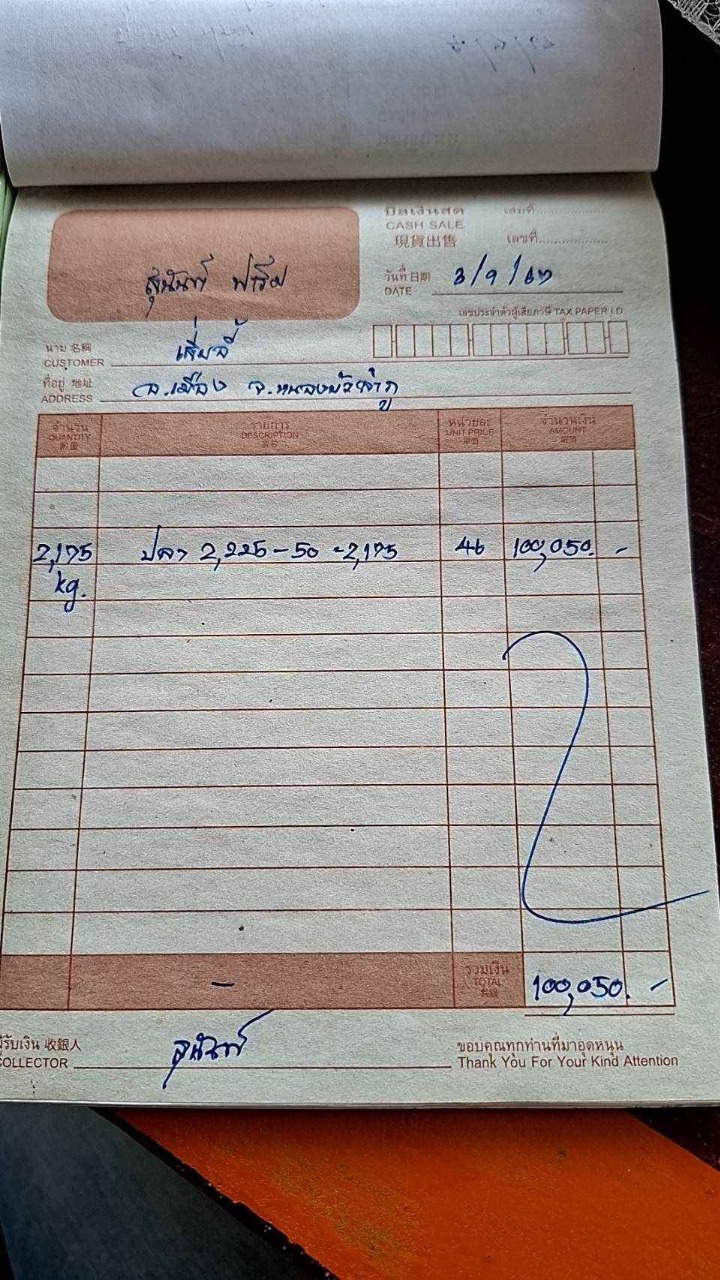 บิลเงินสด เล่มที่
CASH SALE
現貨出售 เลขที่
สุนันท์ ฟาร์ม
วันที่ 日期 3/9/67
DATE
เลขประจำตัวผู้เสียภาษี TAX PAPER I D
นาม 名稱
CUSTOMER
ที่อยู่ 地址 อ.เมือง จ.หนองบัวลำภู
ADDRESS
จำนวน รายการ หน่วยละ จำนวนเงิน
QUANTITY DESCRIPTION UNIT PRICE AMOUNT
2,175 ปลา 2,225-50 =2,175 46 100,050. -
kg.
รวมเงิน
TOTAL 100,050. -
ผู้รับเงิน 收銀人 สุนันท์ ขอบคุณทุกท่านที่มาอุดหนุน
COLLECTOR Thank You For Your Kind Attention